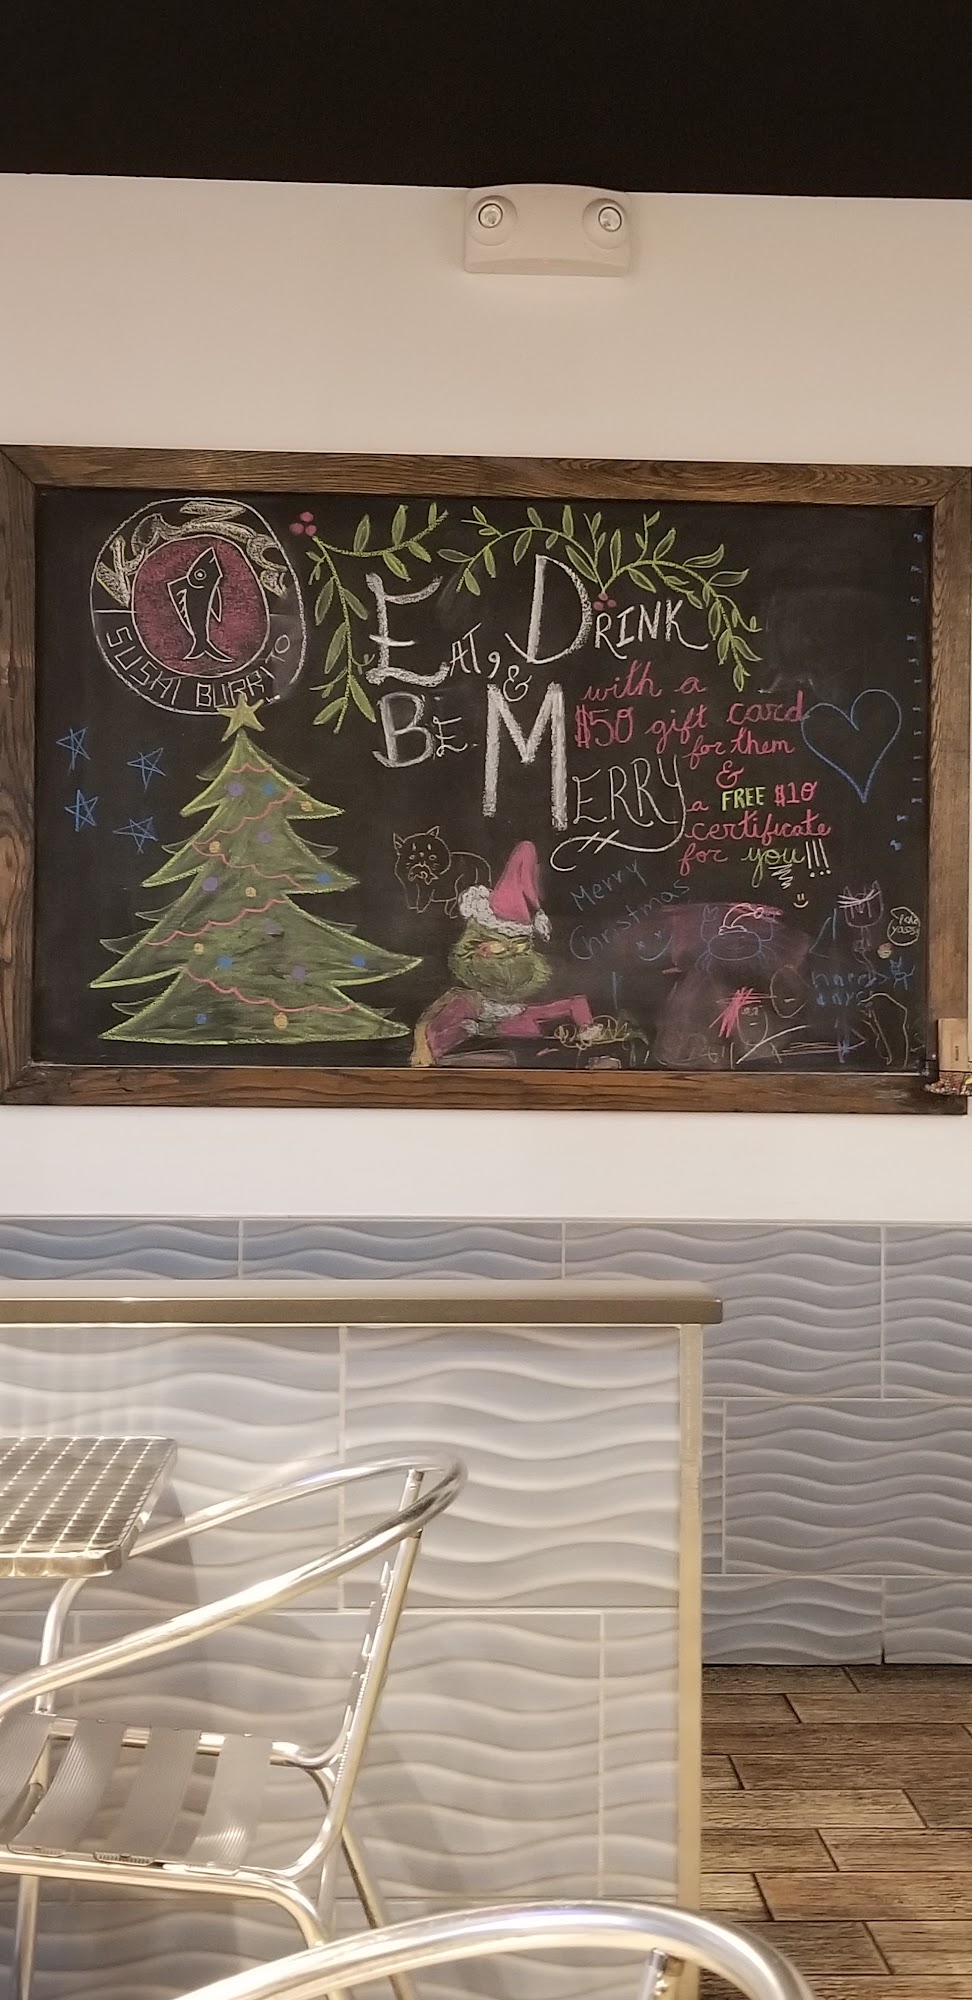 SUSHI BURRITO
EAT, DRINK
& BE MERRY
with a
$50 gift card
for them
&
a FREE $10
certificate
for you!!!
Merry
Christmas